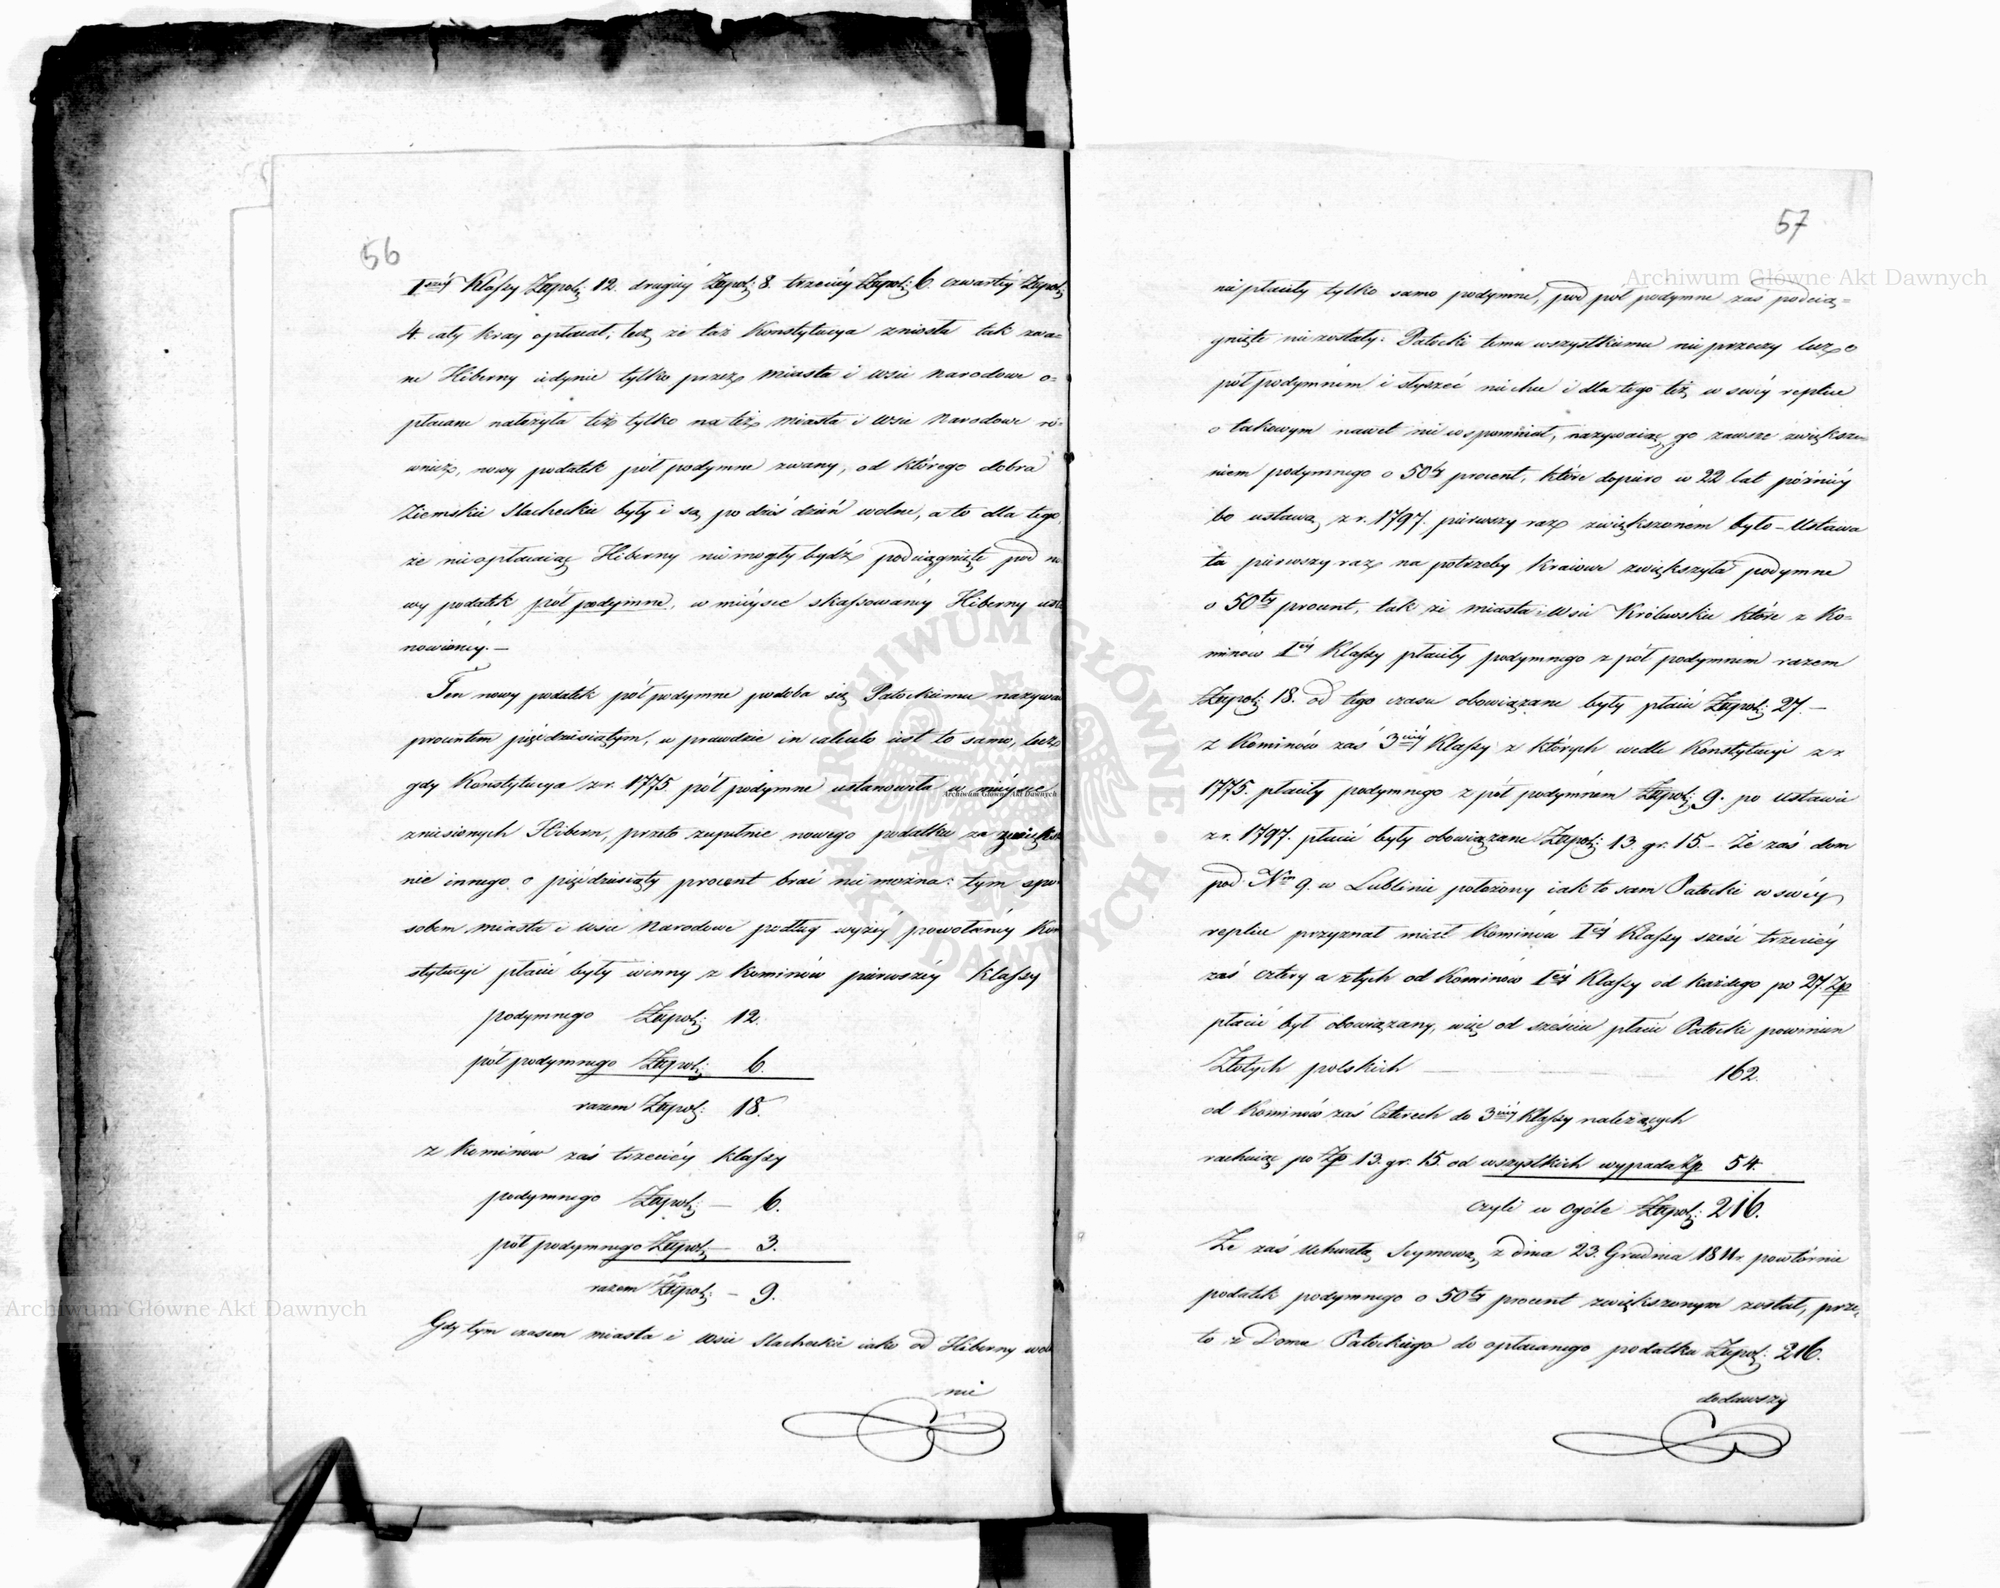 56
Iszéy Klassy Złpol: 12. drugiéy Złpol: 8. trzeciéy Złpol: 6. czwartéy Złpol:
4. cały kray opłacał, lecz że taż Konstytucya zniosła tak zwa=
ne Hiberny iedynie tylko przez miasta i wsie Narodowe o=
płacane należyła też tylko na też miasta i wsie Narodowe ró=
wnież, nowy podatek pół podymne zwany, od którego dobra
Ziemskie Slacheckie były i są po dziś dzień wolne, a to dla tego,
że nie opłacaiąc Hiberny nie mogły bydź podciągnięte pod no
wy podatek pół podymne, w mieysce skassowanéy Hiberny usta
nowiony. —
Ten nowy podatek pół podymne podoba się Patockiemu nazywać
procentem pięćdziesiątym, w prawdzie in calculo iest to samo, lecz
gdy Konstytucya z r. 1775. pół podymne ustanowiła w mieysce
zniesionych Hibern, przeto zupełnie nowego podatku za zwięksże
nie innego o pięćdziesiąty procent brać nie można: tym spo=
sobem miasta i wsie Narodowe podług wyżéy powołanéy Kon
stytucyi płacić były winny z kominów pierwszéy klassy
podymnego Złpol: 12.
pół podymnego Złpol: 6.
razem Złpol: 18.
z kominów zaś trzeciéy klassy
podymnego Złpol: — 6.
pół podymnego Złpol: — 3.
razem Złpol: — 9.
Gdy tym czasem miasta i wsie Slacheckie iako od Hiberny wol
nie
57
nie płaciły tylko samo podymne, pod pół podymne zaś podcią=
gnięte nie zostały. Patocki temu wszystkiemu nie przeczy lecz o
pół podymném i słyszeć nie chce i dla tego też w swéy replice
o takowym nawet nie wspomniał, nazywaiąc go zawsze zwiększe=
niem podymnego o 50ty procent, które dopiero w 22 lat późniéy
bo ustawą z r. 1797. pierwszy raz zwiększoném było — Ustawa
ta pierwszy raz na potrzeby kraiowe zwiększyła podymne
o 50ty procent, tak że miasta i wsie Królewskie które z Ko=
minów Iéy Klassy płaciły podymnego z pół podymném razem
Złpol: 18. od tego czasu obowiązane były płacić Złpol: 27. —
z Kominów zaś 3ciéy Klassy z których wedle Konstytucyi z r.
1775. płaciły podymnego z pół podymném Złpol: 9. po ustawie
z r. 1797. płacić były obowiązane Złpol: 13. gr. 15. — Że zaś dom
pod Nrm 9. w Lublinie położony iak to sam Patocki w swéy
replice przyznał miał kominów Iéy Klassy sześć trzeciéy
zaś cztery a z tych od Kominów Iéy Klassy od każdego po 27. Złp
płacić był obowiązany, więc od sześciu płacić Patocki powinien
Złotych polskich — 162.
od Kominów zaś Czterech do 3ciéy Klassy należących
rachuiąc po Złp 13. gr. 15. od wszystkich wypada Złp. 54.
czyli w ogóle Złpol: 216.
Że zaś Uchwałą Seymową z dnia 23. Grudnia 1811 r. powtórnie
podatek podymnego o 50ty procent zwiększonym został, prze=
to z Domu Patockiego do opłacanego podatku Złpol: 216.
dodawszy
Archiwum Główne Akt Dawnych
Archiwum Główne Akt Dawnych
Archiwum Główne Akt Dawnych
ARCHIWUM GŁÓWNE · AKT DAWNYCH ·